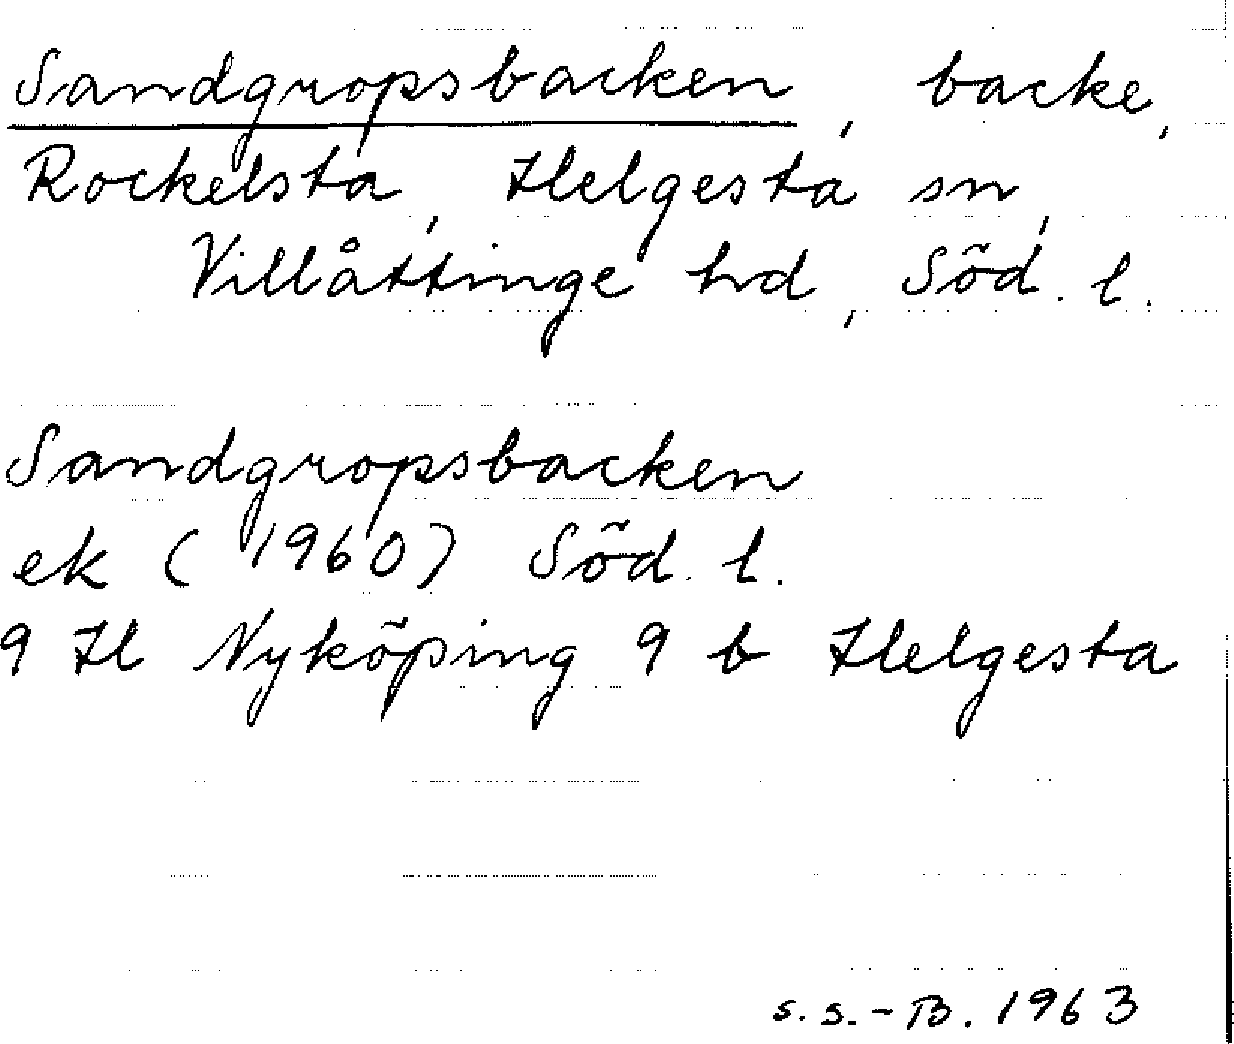 Sandgropsbacken, backe,
Rockelsta, Helgesta sn,
Villåttinge hd, Söd. l.
Sandgropsbacken
ek (1960) Söd. l.
9 H Nyköping 9 b Helgesta
s. s.-B. 1963